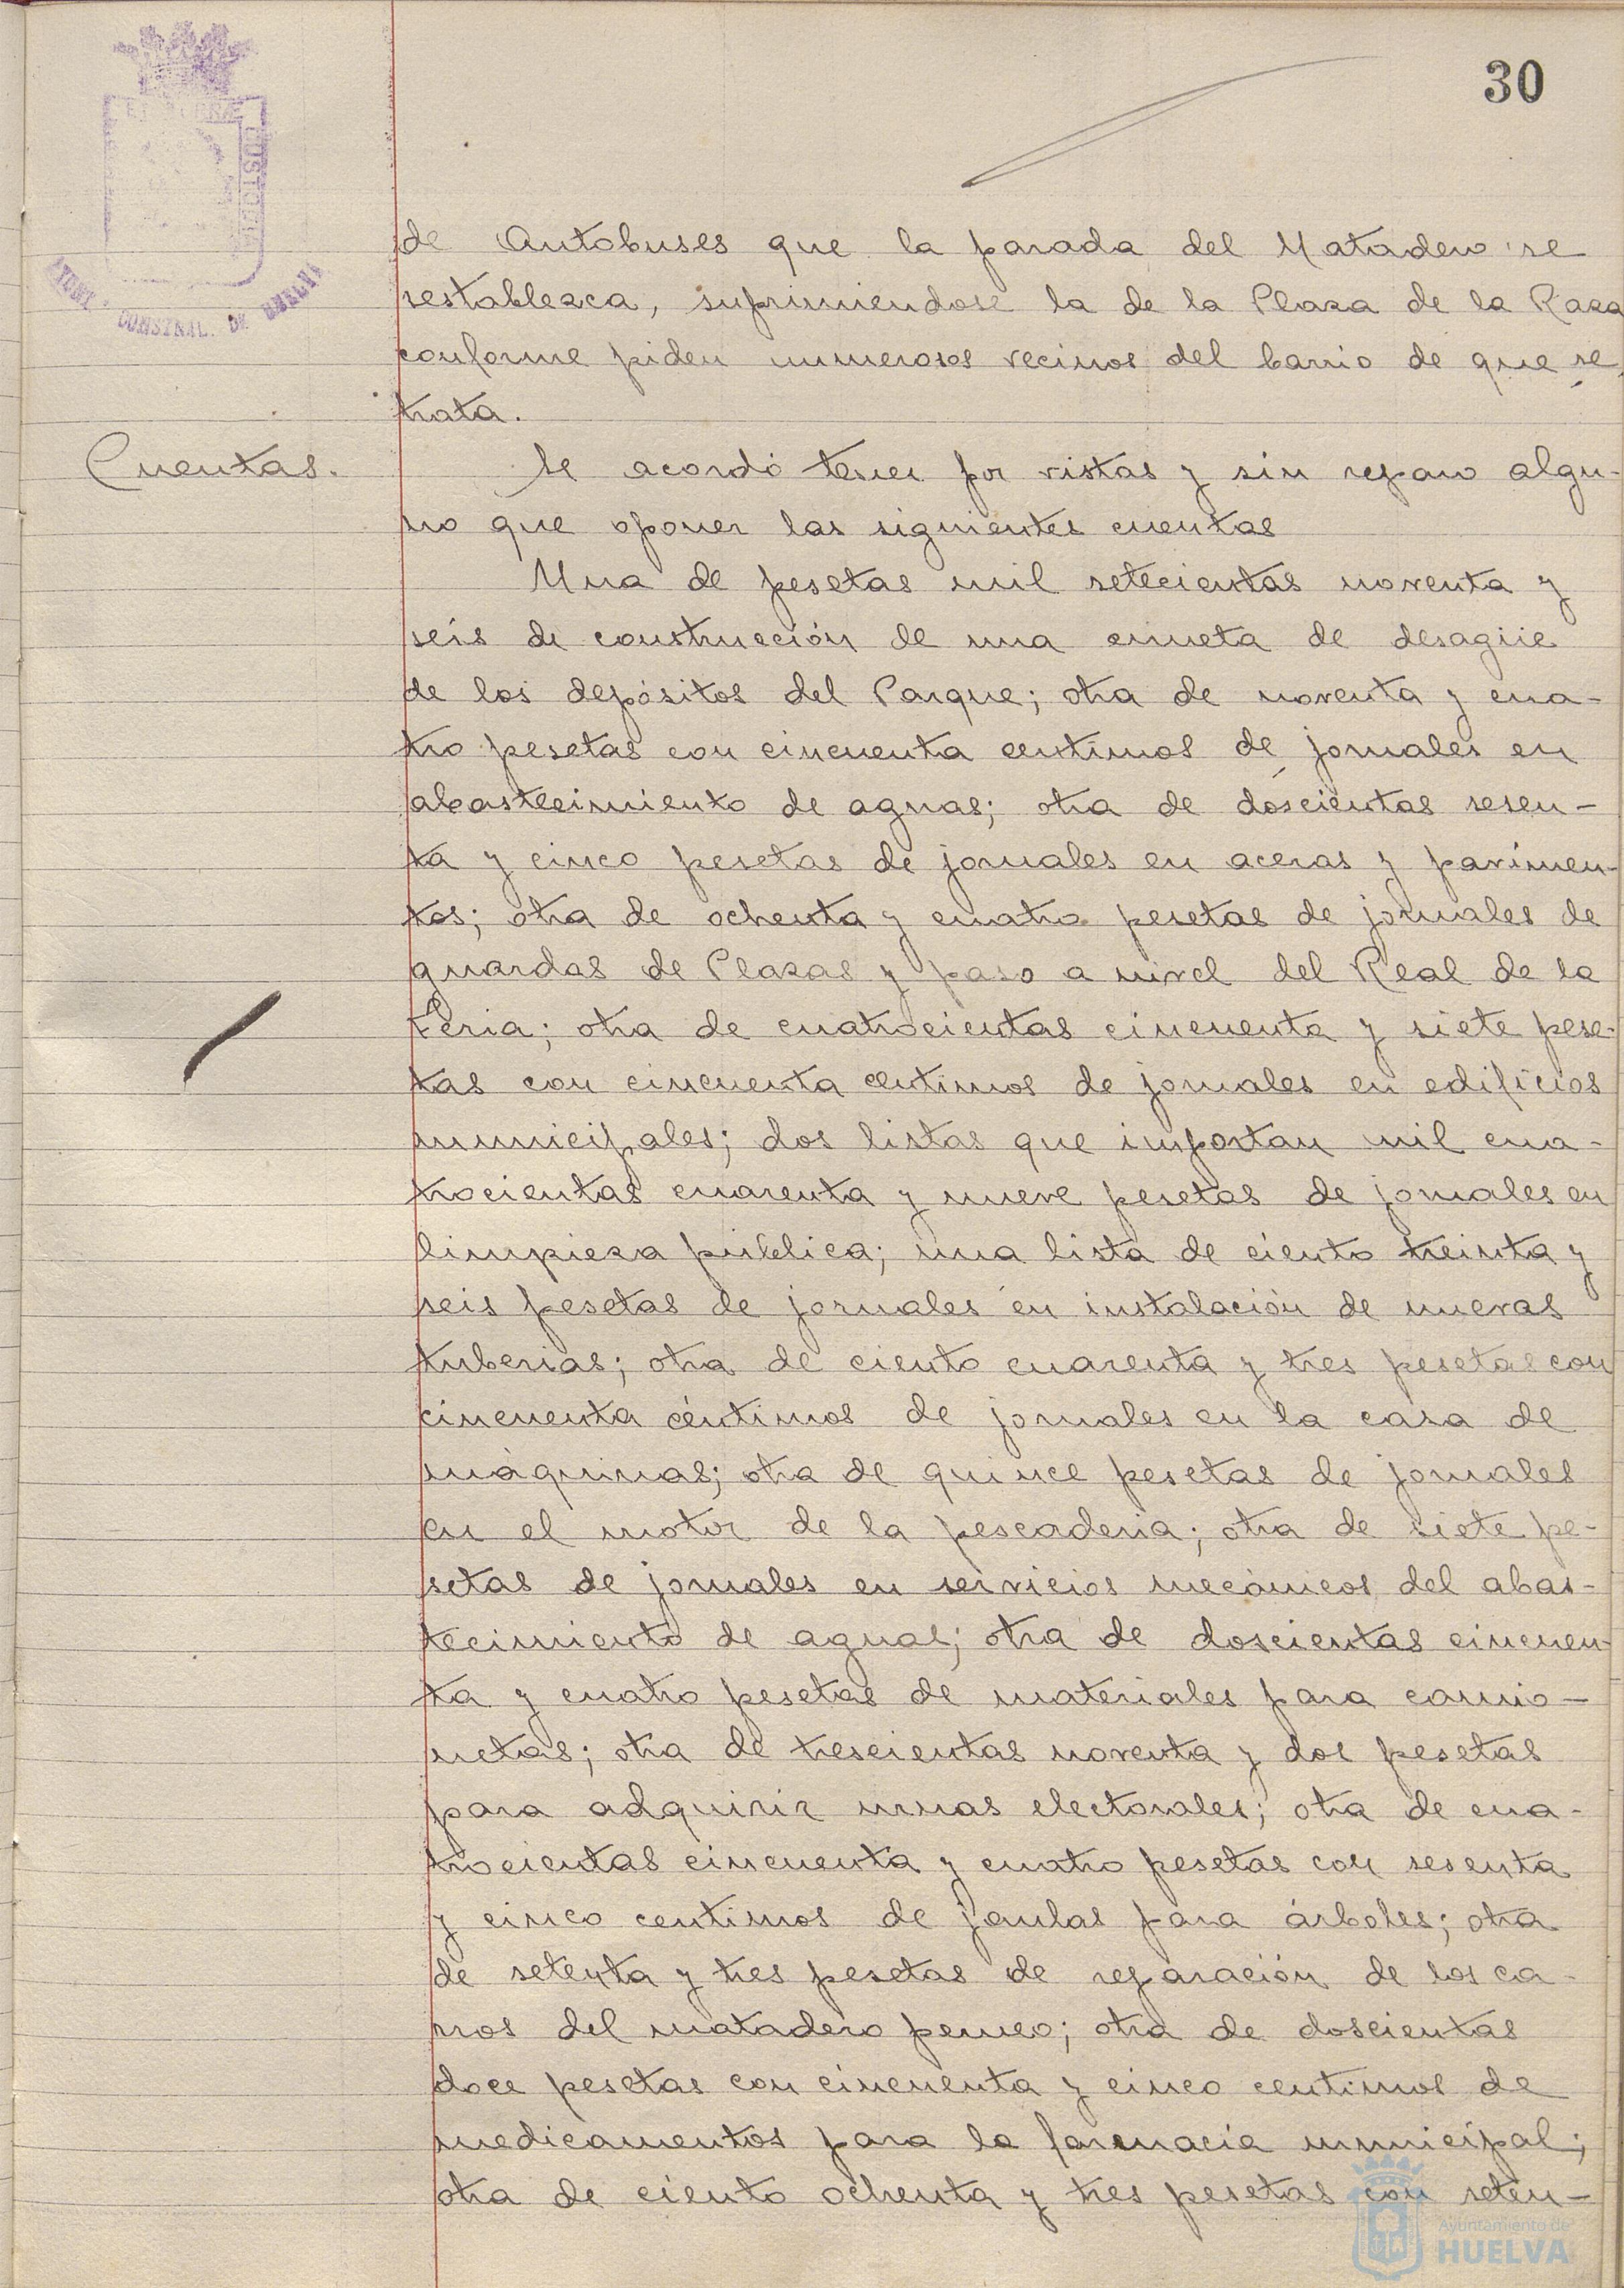 30
PORTUS MARIS ET TERRÆ CUSTODIA
AYUNT. CONSTNAL. DE HUELVA
de Autobuses que la parada del Matadero se
restablezca, suprimiendose la de la Plaza de la Raza
conforme piden numerosos vecinos del barrio de que se
trata.
Cuentas.
Se acordó tener por vistas y sin reparo algu-
no que oponer las siguientes cuentas
Una de pesetas mil setecientas noventa y
seis de construcción de una cuneta de desagüe
de los depósitos del Parque; otra de noventa y cua-
tro pesetas con cincuenta centimos de jornales en
abastecimiento de aguas; otra de doscientas sesen-
ta y cinco pesetas de jornales en aceras y pavimen-
tos; otra de ochenta y cuatro pesetas de jornales de
guardas de Plazas y paso a nivel del Real de la
Feria; otra de cuatrocientas cincuenta y siete pese-
tas con cincuenta centimos de jornales en edificios
municipales; dos listas que importan mil cua-
trocientas cuarenta y nueve pesetas de jornales en
limpieza pública; una lista de ciento treinta y
seis pesetas de jornales en instalación de nuevas
tuberias; otra de ciento cuarenta y tres pesetas con
cincuenta céntimos de jornales en la casa de
máquinas; otra de quince pesetas de jornales
en el motor de la pescaderia; otra de siete pe-
setas de jornales en servicios mecánicos del abas-
tecimiento de aguas; otra de doscientas cincuen-
ta y cuatro pesetas de materiales para camio-
netas; otra de trescientas noventa y dos pesetas
para adquirir urnas electorales; otra de cua-
trocientas cincuenta y cuatro pesetas con sesenta
y cinco centimos de jaulas para árboles; otra
de setenta y tres pesetas de reparación de los ca-
rros del matadero perneo; otra de doscientas
doce pesetas con cincuenta y cinco centimos de
medicamentos para la farmacia municipal;
otra de ciento ochenta y tres pesetas con seten-
Ayuntamiento de
HUELVA